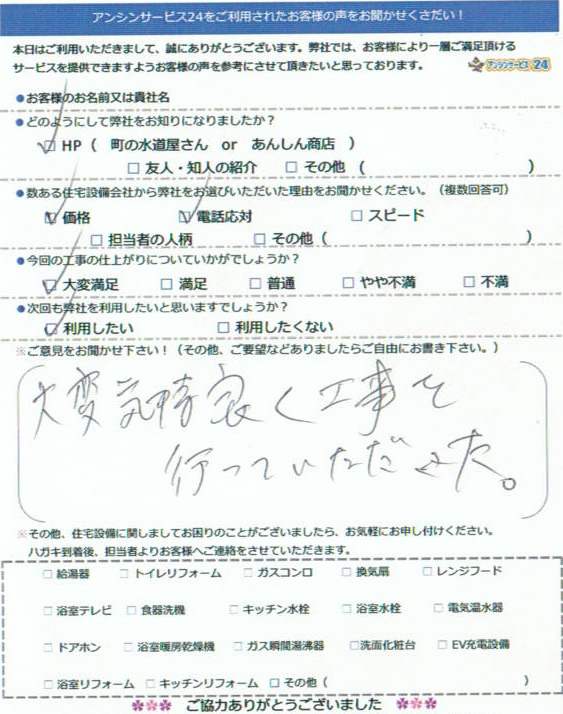 アンシンサービス24をご利用されたお客様の声をお聞かせくさだい！
本日はご利用いただきまして、誠にありがとうございます。弊社では、お客様により一層ご満足頂ける
サービスを提供できますようお客様の声を参考にさせて頂きたいと思っております。
アンシンサービス24
●お客様のお名前又は貴社名
●どのようにして弊社をお知りになりましたか？
☑ HP（ 町の水道屋さん or あんしん商店 ）
□ 友人・知人の紹介 □ その他 （ ）
●数ある住宅設備会社から弊社をお選びいただいた理由をお聞かせください。（複数回答可）
☑ 価格 ☑ 電話応対 □ スピード
□ 担当者の人柄 □ その他（ ）
●今回の工事の仕上がりについていかがでしょうか？
☑ 大変満足 □ 満足 □ 普通 □ やや不満 □ 不満
●次回も弊社を利用したいと思いますでしょうか？
☑ 利用したい □ 利用したくない
※ご意見をお聞かせ下さい！（その他、ご要望などありましたらご自由にお書き下さい。）
大変気持良く工事を
行っていただきました。
※その他、住宅設備に関しましてお困りのことがございましたら、お気軽にお申し付けください。
ハガキ到着後、担当者よりお客様へご連絡をさせていただきます。
□ 給湯器 □ トイレリフォーム □ ガスコンロ □ 換気扇 □ レンジフード
□ 浴室テレビ □ 食器洗機 □ キッチン水栓 □ 浴室水栓 □ 電気温水器
□ ドアホン □ 浴室暖房乾燥機 □ ガス瞬間湯沸器 □洗面化粧台 □ EV充電設備
□ 浴室リフォーム □ キッチンリフォーム □ その他（ ）
ご協力ありがとうございました